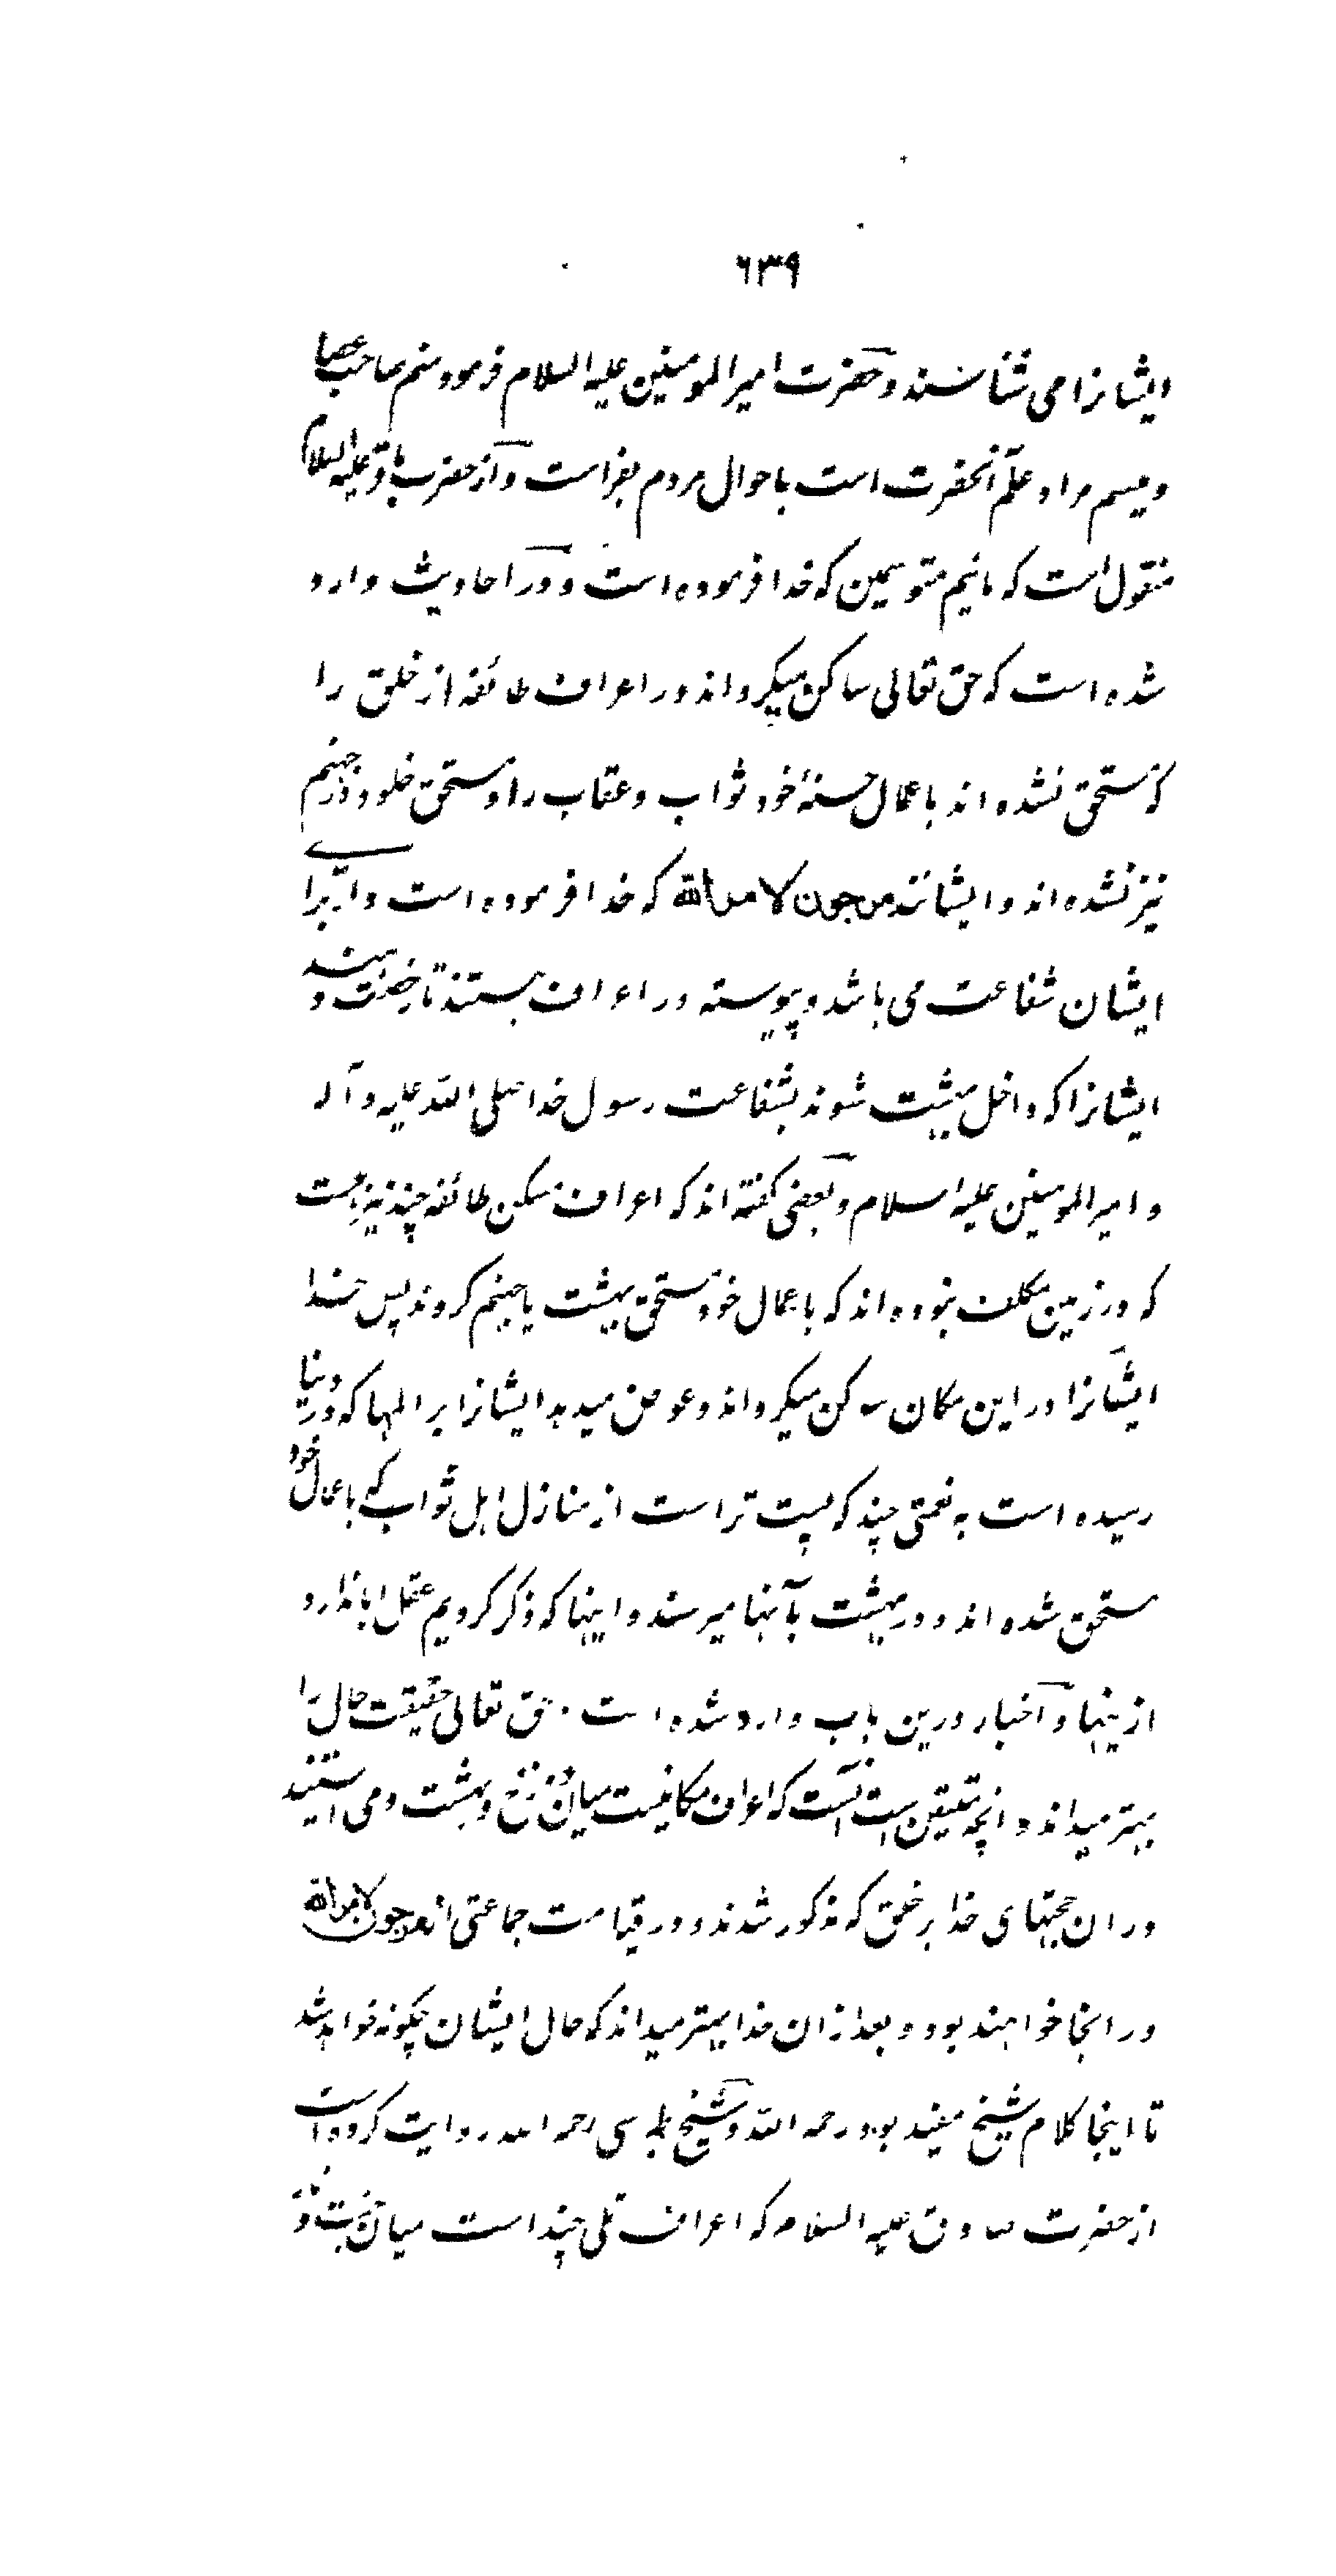 ٦٣٩
ایشانرا می شناسند و حضرت امیرالمومنین علیه السلام فرمود منم صاحب عصا
و میسم مراد علم آنحضرت است باحوال مردم بفراست و از حضرت باقر علیه السلام
منقول است که مائیم متوسمین که خدا فرموده است و در احادیث وارد
شده است که حق تعالی ساکن میگرداند در اعراف طائفه از خلق را
که مستحق نشده اند باعمال حسنهٔ خود ثواب و عقاب را و مستحق خلود در جهنم
نیز نشده اند و ایشانند مرجون لامر الله که خدا فرموده است و از برای
ایشان شفاعت می باشد و پیوسته در اعراف هستند تا رخصت دهند
ایشانرا که داخل بهشت شوند بشفاعت رسول خدا صلی الله علیه و آله
و امیرالمومنین علیه اسلام و بعضی گفته اند که اعراف مسکن طائفه چند نیز هست
که در زمین مکلف نبوده اند که باعمال خود مستحق بهشت یا جهنم گردند پس خدا
ایشانرا در این مکان ساکن میگرداند و عوض میدهد ایشانرا بر المها که در دنیا
رسیده است به نعمتی چند که پست تر است از منازل اهل ثواب که باعمال خود
مستحق شده اند و در بهشت بآنها میرسند و اینها که ذکر کردیم عقل ابا ندارد
از ینها و اخبار درین باب وارد شده است و حق تعالی حقیقت حال را
بهتر میداند و انچه متیقن است آنست که اعراف مکانیست میان دوزخ و بهشت و می ایستند
در ان حجتهای خدا بر خلق که مذکور شدند و در قیامت جماعتی از مرجون لامر الله
در انجا خواهند بود و بعد از ان خدا بهتر میداند که حال ایشان چگونه خواهد شد
تا اینجا کلام شیخ مفید بود رحمه الله و شیخ طبرسی رحمه الله روایت کرده است
از حضرت صادق علیه السلام که اعراف تلی چند است میان جنت و